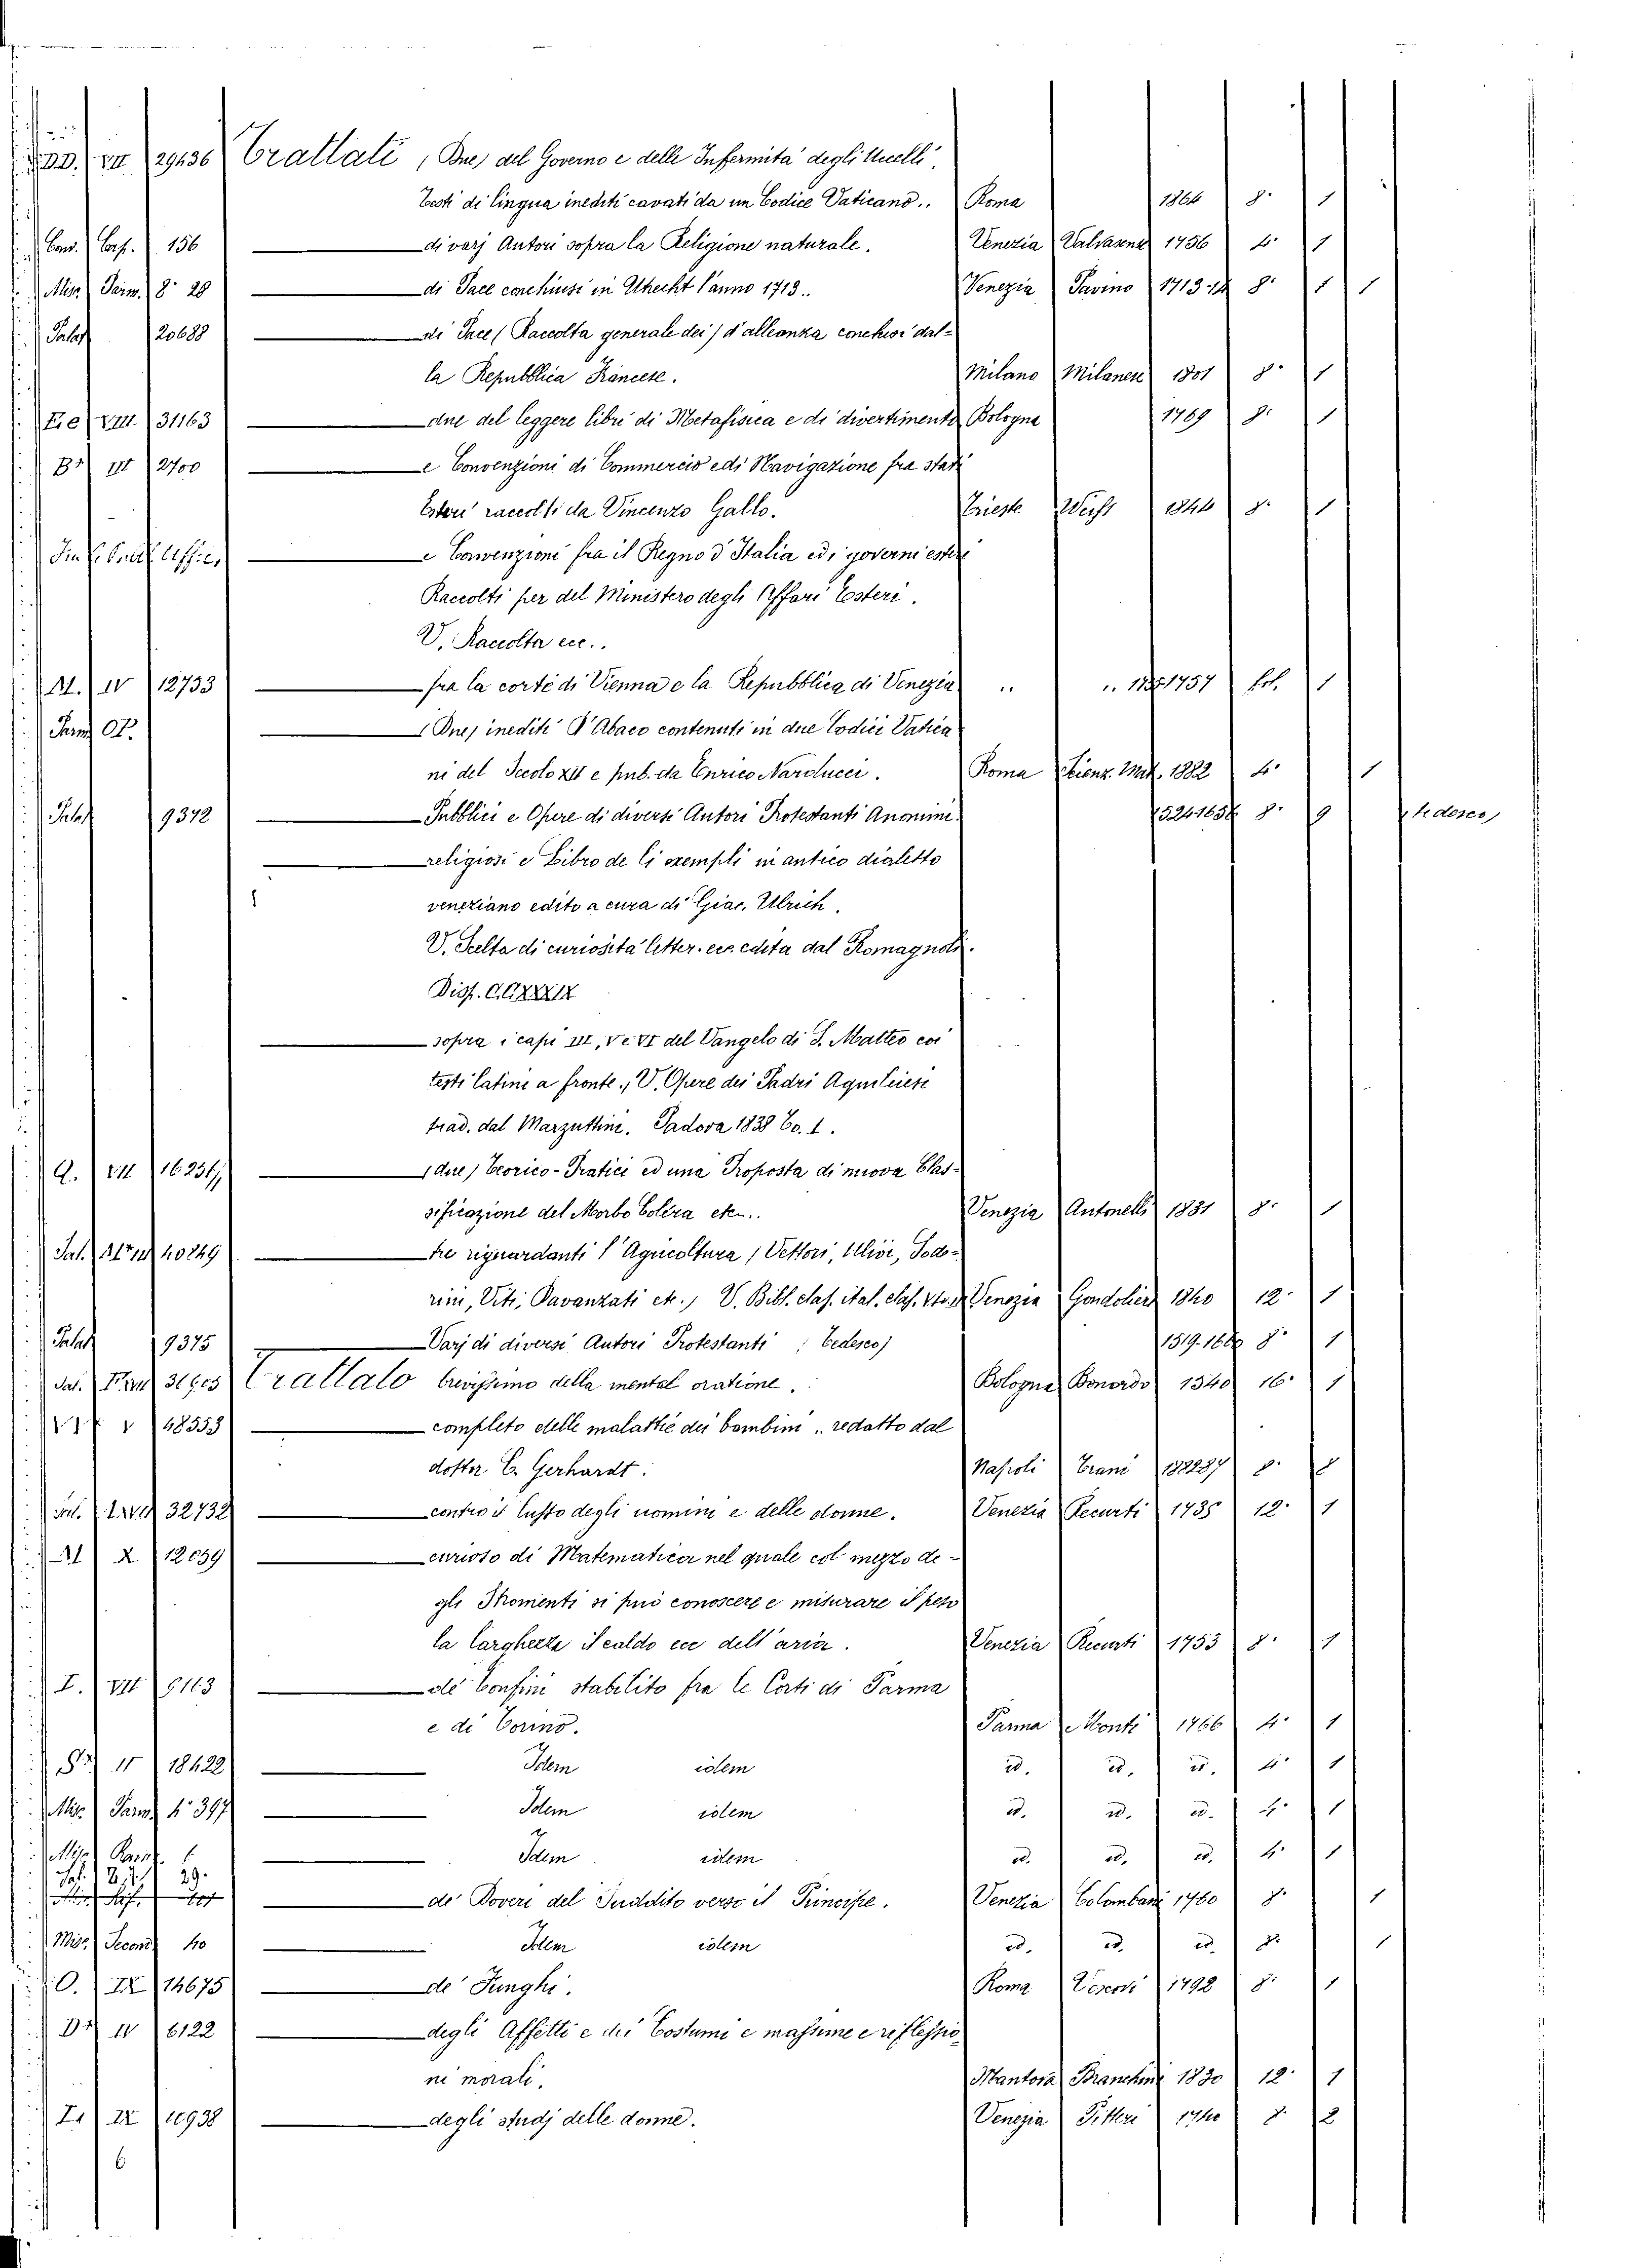 DD. VII 29436 Trattati (Due) del Governo e delle Infermità degli Uccelli,
Testi di lingua inediti cavati da un Codice Vaticano.. Roma 1864 8° 1
Conv. Cass. 156 — di varj Autori sopra la Religione naturale. Venezia Valvasense 1756 4° 1
Misc. Parm. 8° 28 — di Pace conchiusi in Utrecht l'anno 1713.. Venezia Pavino 1713-14 8° 1 1
Palat 20688 — di Pace (Raccolta generale dei) d'alleanza conchiusi dal-
la Repubblica Francese. Milano Milanese 1801 8° 1
Ee VIII. 31163 — due del leggere libri di Metafisica e di divertimento Bologna 1769 8° 1
B+ III 2700 — e Convenzioni di Commercio e di Navigazione fra stati
Esteri raccolti da Vincenzo Gallo. Trieste Weiss 1844 8° 1
— e Convenzioni fra il Regno d'Italia ed i governi esteri
Raccolti per del Ministero degli Affari Esteri.
V. Raccolta ecc..
M. IV 12733 — fra la corte di Vienna e la Repubblica di Venezia .. .. 1757 fol. 1
— (Due) inediti d'Abaco contenuti in due Codici Vatica
ni del Secolo XII e pub. da Enrico Narducci. Roma Scienz. Mat. 1882 4° 1
Palat 9372 — Pubblici e Opere di diversi Autori Protestanti Anonimi. 1524 1654 8° 9 tedesco)
— religiosi e Libro de li exempli in antico dialetto
veneziano edito a cura di Giac. Ulrich.
V. Scelta di curiosità letter. ecc. edita dal Romagnoli.
Disp. CCXXXIX
— sopra i capi III, V e VI del Vangelo di S. Matteo coi
testi latini a fronte., V. Opere dei Padri Aquileiesi
trad. dal Marzuttini. Padova 1838 To. 1.
Q. VII 16231 — (due) Teorico-Pratici ed una Proposta di nuova Clas-
sificazione del Morbo Colera etc... Venezia Antonelli 1831 8° 1
40249 — tre riguardanti l'Agricoltura (Vettori, Ulivi, Sode-
rini, Viti; Davanzati etc.) V. Bibl. clas. ital. clas. Venezia Gondoliere 1840 12° 1
Palat 9375 — Varj di diversi Autori Protestanti (Tedesco) 8° 1
Trattato brevissimo della mental oratione. Bologna Bonardo 1540 16° 1
V 48353 — completo delle malattie dei bambini .. redatto dal
dottor C. Gerhardt. Napoli Trani 1882 87 8° 8
32732 — contro il lusso degli uomini e delle donne. Venezia Recurti 1735 12° 1
X 12059 — curioso di Matematica nel quale col mezzo de-
gli Stromenti si può conoscere e misurare il peso
la larghezza il caldo ecc dell'aria. Venezia Recurti 1753 8° 1
I. VII 6113 — de' Confini stabilito fra le Corti di Parma
e di Torino. Parma Monti 1766 4° 1
18422 — Idem idem id. id. id. 4° 1
Misc. Parm. 4° 397 — Idem idem id. id. id. 4° 1
29. — Idem idem id. id. id. 4° 1
— de' Doveri del Suddito verso il Principe. Venezia Colombani 1760 8° 1
Misc. Second. 40 — Idem idem id. id. id. 8° 1
O. IX 14675 — de' Funghi. Roma 1792 8° 1
D+ IV 6122 — degli Affetti e dei Costumi e massime e riflessio
ni morali. Mantova Branchini 1830 12° 1
IX 11938 — degli studj delle donne. Venezia Pitteri 1740 8° 2
6